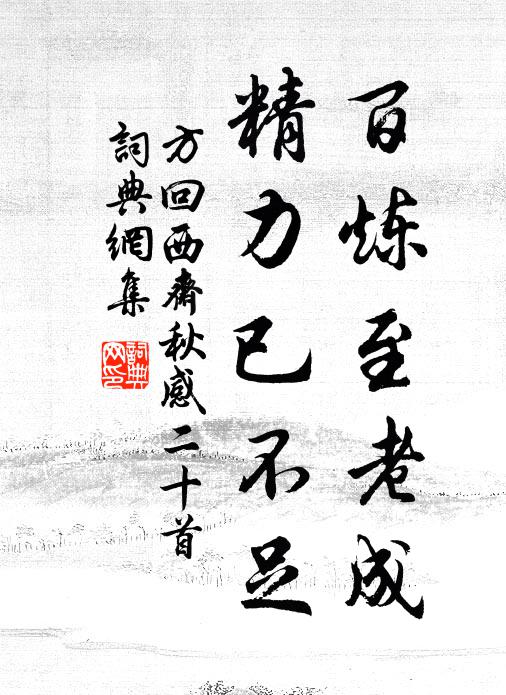 百炼至老成
精力已不足
方回西齋秋感二十首
詞典網集
詞典網印